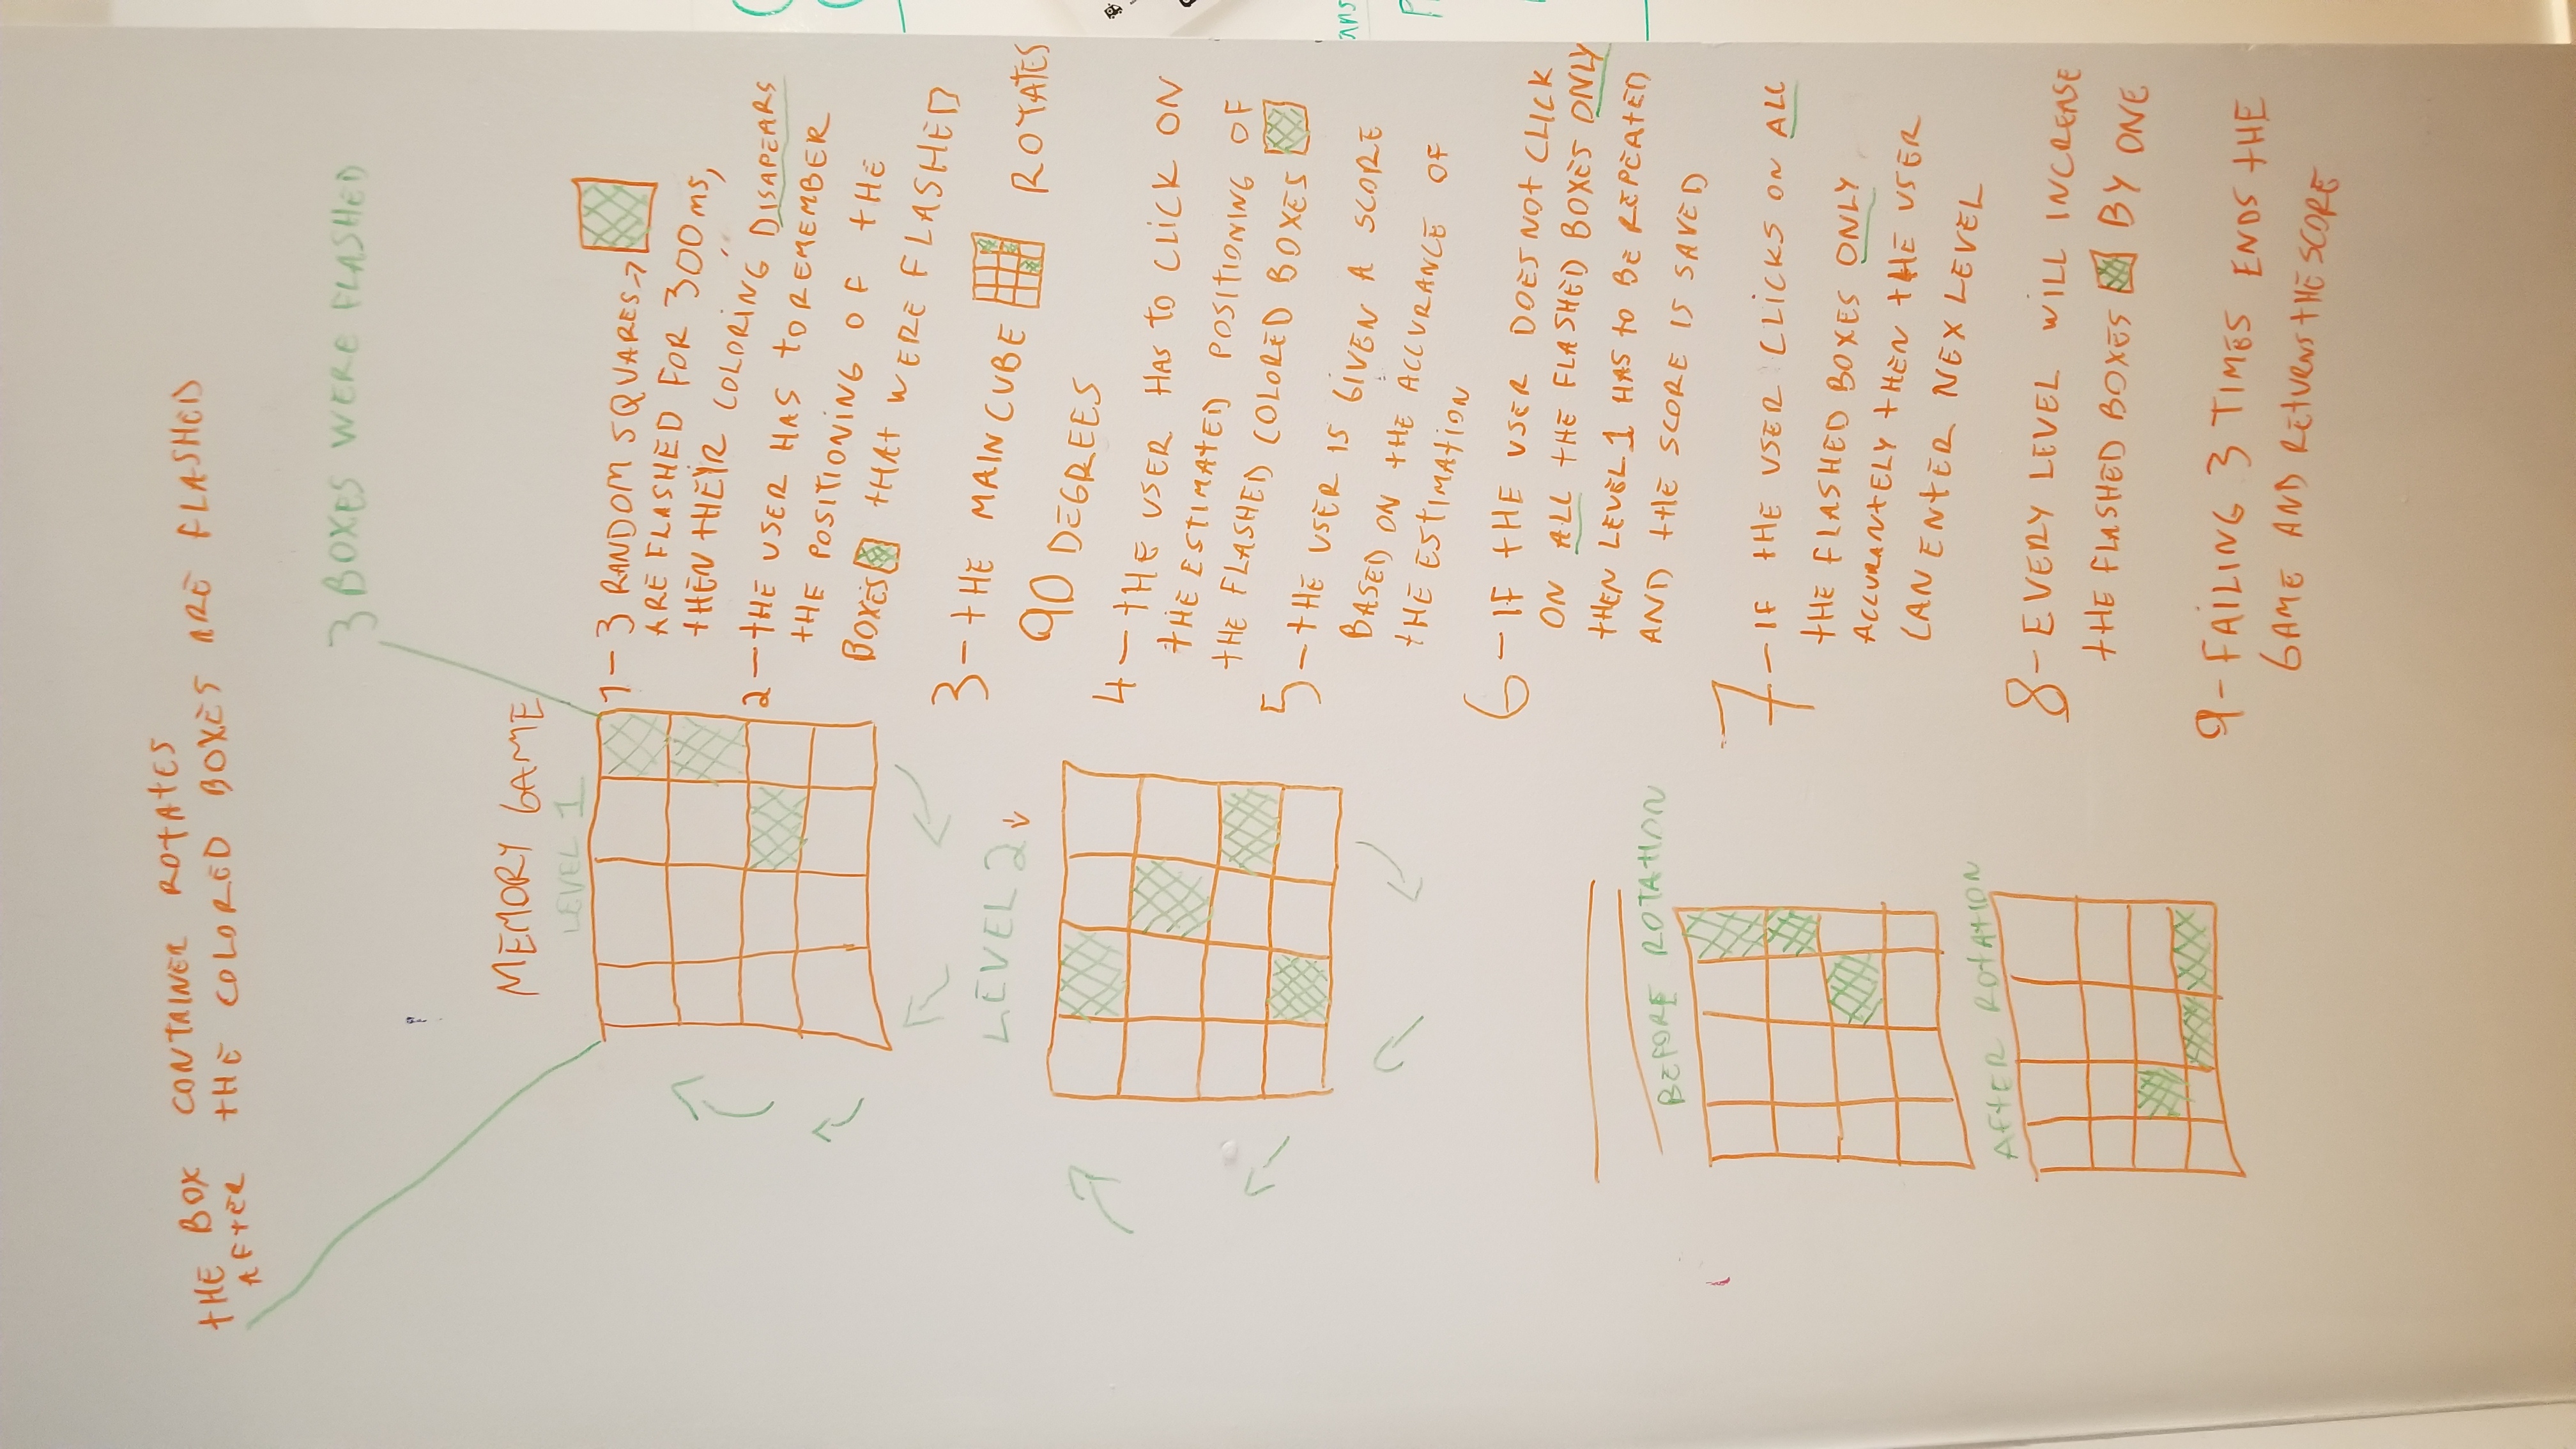 THE BOX CONTAINER ROTATES
AFTER THE COLORED BOXES ARE FLASHED
3 BOXES WERE FLASHED
MEMORY GAME
LEVEL 1
1- 3 RANDOM SQUARES →
ARE FLASHED FOR 300ms,
THEN THEIR COLORING DISAPEARS
2- THE USER HAS TO REMEMBER
THE POSITIONING OF THE
BOXES THAT WERE FLASHED
3- THE MAIN CUBE ROTATES
90 DEGREES
LEVEL 2 ↓
4- THE USER HAS TO CLICK ON
THE ESTIMATED POSITIONING OF
THE FLASHED COLORED BOXES
5- THE USER IS GIVEN A SCORE
BASED ON THE ACCURANCE OF
THE ESTIMATION
6- IF THE USER DOES NOT CLICK
ON ALL THE FLASHED BOXES ONLY
THEN LEVEL 1 HAS TO BE REPEATED
AND THE SCORE IS SAVED
BEFORE ROTATION
7- IF THE USER CLICKS ON ALL
THE FLASHED BOXES ONLY
ACCURANTELY THEN THE USER
CAN ENTER NEX LEVEL
AFTER ROTATION
8- EVERY LEVEL WILL INCREASE
THE FLASHED BOXES BY ONE
9- FAILING 3 TIMES ENDS THE
GAME AND RETURNS THE SCORE